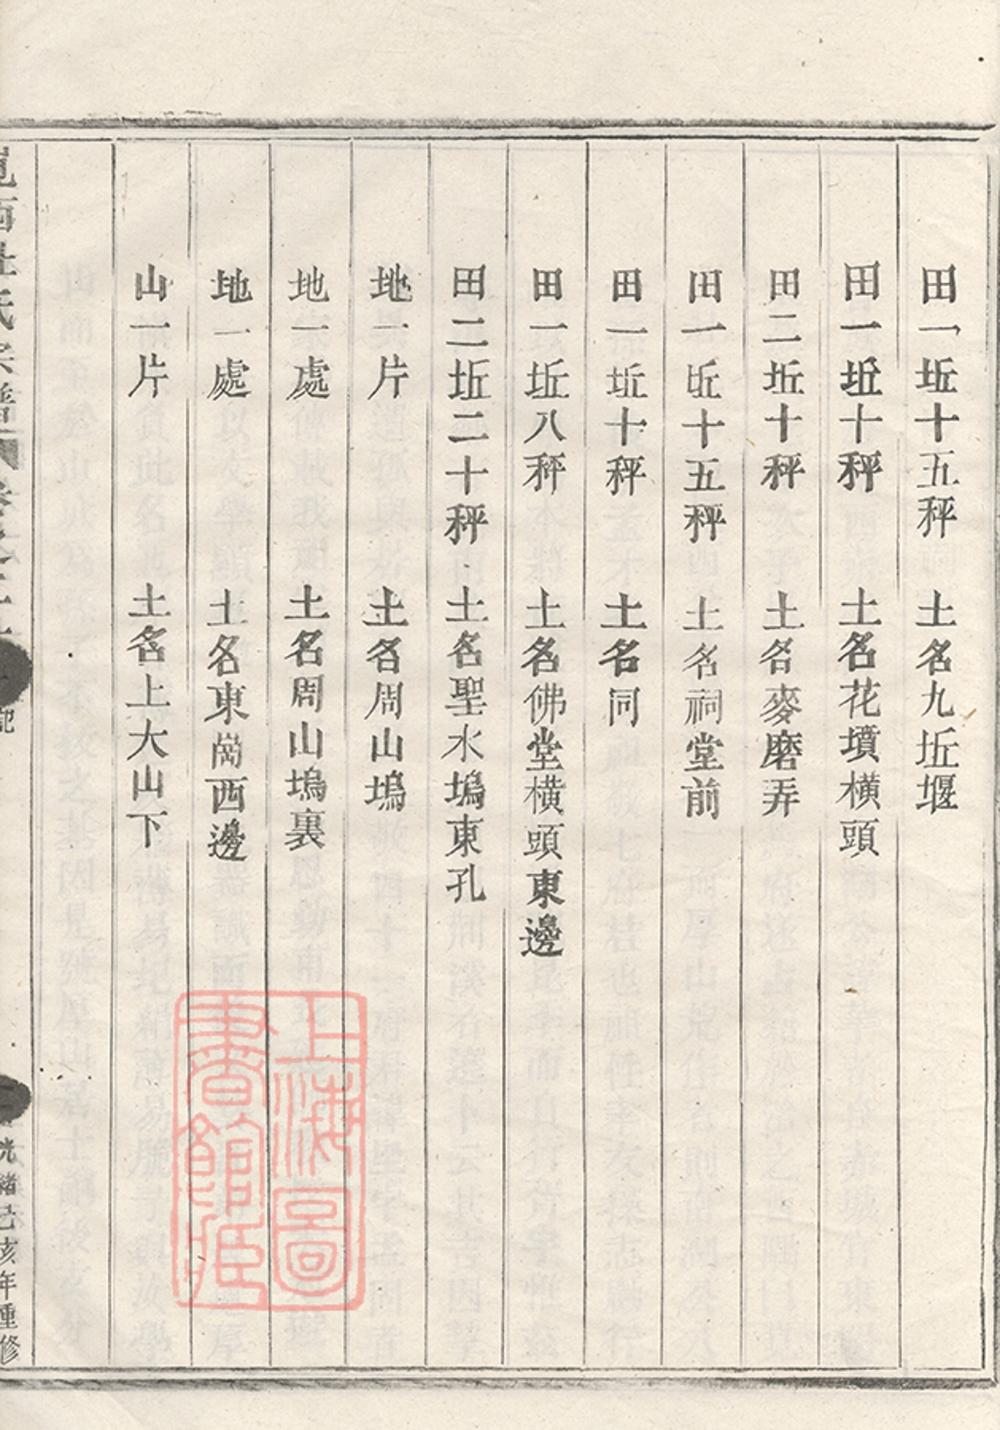 田一坵十五秤 土名九坵堰
田一坵十秤 土名花墳橫頭
田二坵十秤 土名麥磨弄
田一坵十五秤 土名祠堂前
田一坵十秤 土名同
田一坵八秤 土名佛堂橫頭東邊
田二坵二十秤 土名聖水塢東孔
地一片 土名周山塢
地一處 土名周山塢裏
地一處 土名東崗西邊
山一片 土名上大山下
西杜氏宗譜 卷之二十 記 光緒己亥年重修
上海圖書館藏